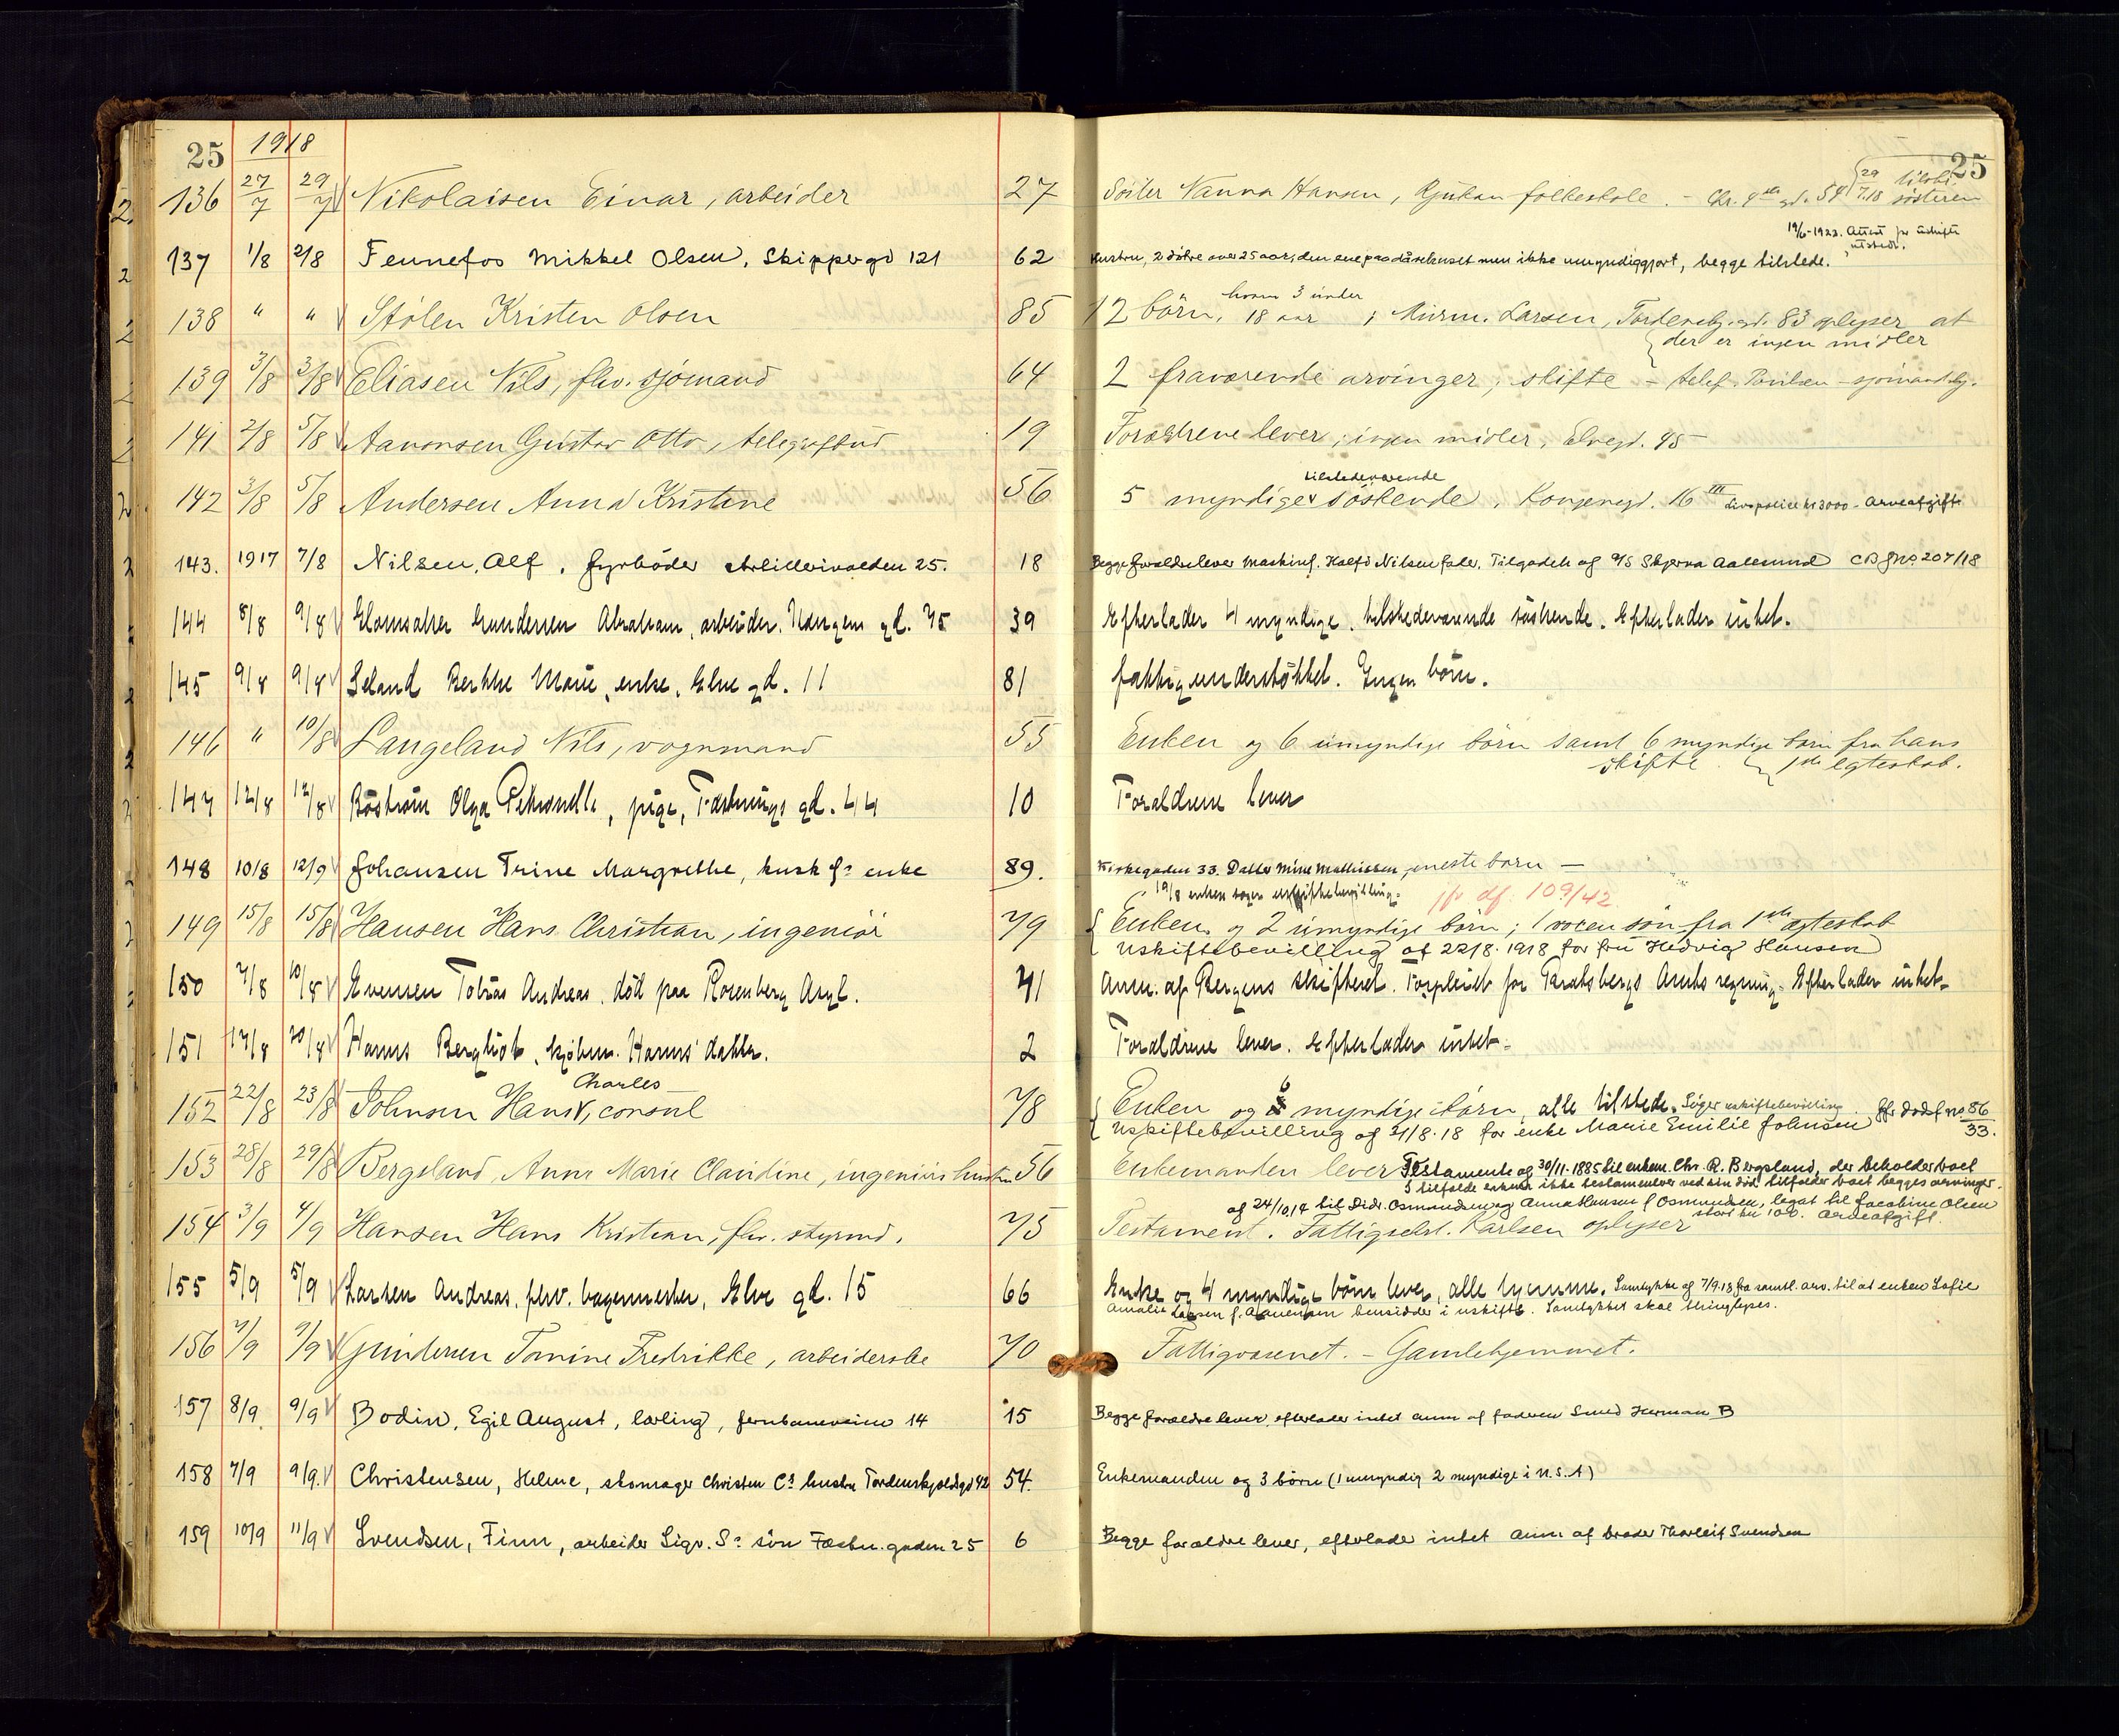 25 1918
136 27/7 29/7 Nikolaisen Einar, arbeider 27
137 1/8 2/8 Fennefos Mikkel Olsen, Skippergd 121 62
138 " " Stólen Kristen Olsen 85
139 3/8 3/8 Eliasen Nils, fhv. sjómand 64
141 2/8 5/8 Aanonsen Gustav Otto, telegrafbud 19
142 3/8 5/8 Andersen Anna Kristine 56
143. 1917 7/8 Nilsen, Alf, fyrböder Artillerivolden 25. 18
144 8/8 9/8 Glamsaker Gundersen Abraham, arbeider, Kongens gd. 75 39
145 9/8 9/8 Seland Berthe Marie, enke, Elve gd. 11 81
146 " 10/8 Langeland Nils, vognmand 55
147 12/8 12/8 Böström Olga Petronelle, pige, Fæstnings gd. 44 10
148 10/8 12/9 Johansen Trine Margrethe, kusk J's enke 89.
149 15/8 15/8 Hansen Hans Christian, ingeniör 79
150 7/8 10/8 Evensen Tobias Andreas, död paa Rosenberg Asyl. 41
151 17/8 20/8 Harms Bergliot, kjöbm. Harms' datter. 2
Charles
152 22/8 23/8 Johnsen Hans, consul 78
153 28/8 29/8 Bergsland, Anna Marie Claudine, ingeniörs hustru 56
154 3/9 4/9 Hansen Hans Kristian, fhv. styrmd. 75
155 5/9 5/9 Larsen Andreas, fhv. bagermester, Elve gd. 15 66
156 7/9 9/9 Gundersen Tomine Fredrikke, arbeiderske 70
157 8/9 9/9 Bodin, Egil August, lærling, Jernbaneveien 14 15
158 7/9 9/9. Christensen, Helene, skomager Christen C's hustru Tordenskjoldsgd 42 54.
159 10/9 11/9 Svendsen, Finn, arbeider Sigv. S's sön Fæstn.gaden 25 6
25
Söster Nanna Hansen, Rjukan folkeskole. - Chr. 4de gd. 54 29/7.18 tilst. søsteren
19/6-1923. Attest for skifte utstedt.
Hustru, 2 dötre over 25 aar, den ene paa daarekasset men ikke umyndiggjort, begge tilstede.
hvorav 3 under
12 börn, 18 aar, Murm. Larsen, Tordenskj.gd. 83 oplyser at
der er ingen midler
2 fraværende arvinger, skifte - telef. Poulsen - sjömandsbg.
Forældrene lever; ingen midler, Elvegd. 45
tilstedeværende
5 myndige söskende, Kongensgd. 16 III Livspolice kr 3000 - Arveafgift
Begge forældre lever Maskinf. Halfd Nilsen fader. Tilgodeh. af D/S Skjerva Aalesund CB Jno. 207/18
Efterlader 4 myndige, tilstedeværende söskende. Efterlader intet.
Fattigunderstöttet. Ingen börn.
Enken og 6 umyndige börn samt 6 myndige börn fra hans
skifte. 1ste egteskab.
Forældrene lever
Kirkegaden 33. Datter Mine Mathissen, eneste barn -
19/8 enken söger uskiftebevilling. jfr df. 109/42
Enken og 2 umyndige börn; 1 voxen sön fra 1ste ægteskab
Uskiftebevilling af 22/8. 1918 for fru Hedvig Hansen
Anm. af Bergens skifteret. Forpleiet for Bratsbergs Amts regning. Efterlader intet.
Forældrene lever. Efterlader intet.
Enken og 6 myndige börn, alle tilstede. Söger uskiftebevilling. Jfr dödsf no. 86/33.
Uskiftebevilling af 31/8.18 for enke Marie Emilie Johnsen
Enkemanden lever Testamente af 30/11.1885 til enkem. Chr. R. Bergsland, der beholder boet
I tilfælde enkem ikke testamenterer ved sin död, tilfalder boet begges arvinger.
af 24/10.17 til Didr. Osmundsen og Anna Hansen f. Osmundsen, legat til Jacobine Olsen
stort kr 100. Arveafgift.
Testament. Fattigsekt. Karlsen oplyser
Enke og 4 myndige börn lever, alle hjemme. Samtykke af 7/9.18 fra samtl. arv. til at enken Sofie
Amalie Larsen f. Aanensen hensidder i uskifte. Samtykket skal thinglyses.
Fattigvæsenet. - Gamlehjemmet.
Begge forældre lever, efterlader intet anm af faderen Smed Herman B
Enkemanden og 3 börn (1 umyndig 2 myndige i U.S.A)
Begge forældre lever, efterlader intet Anm. af broder Thorleif Svendsen